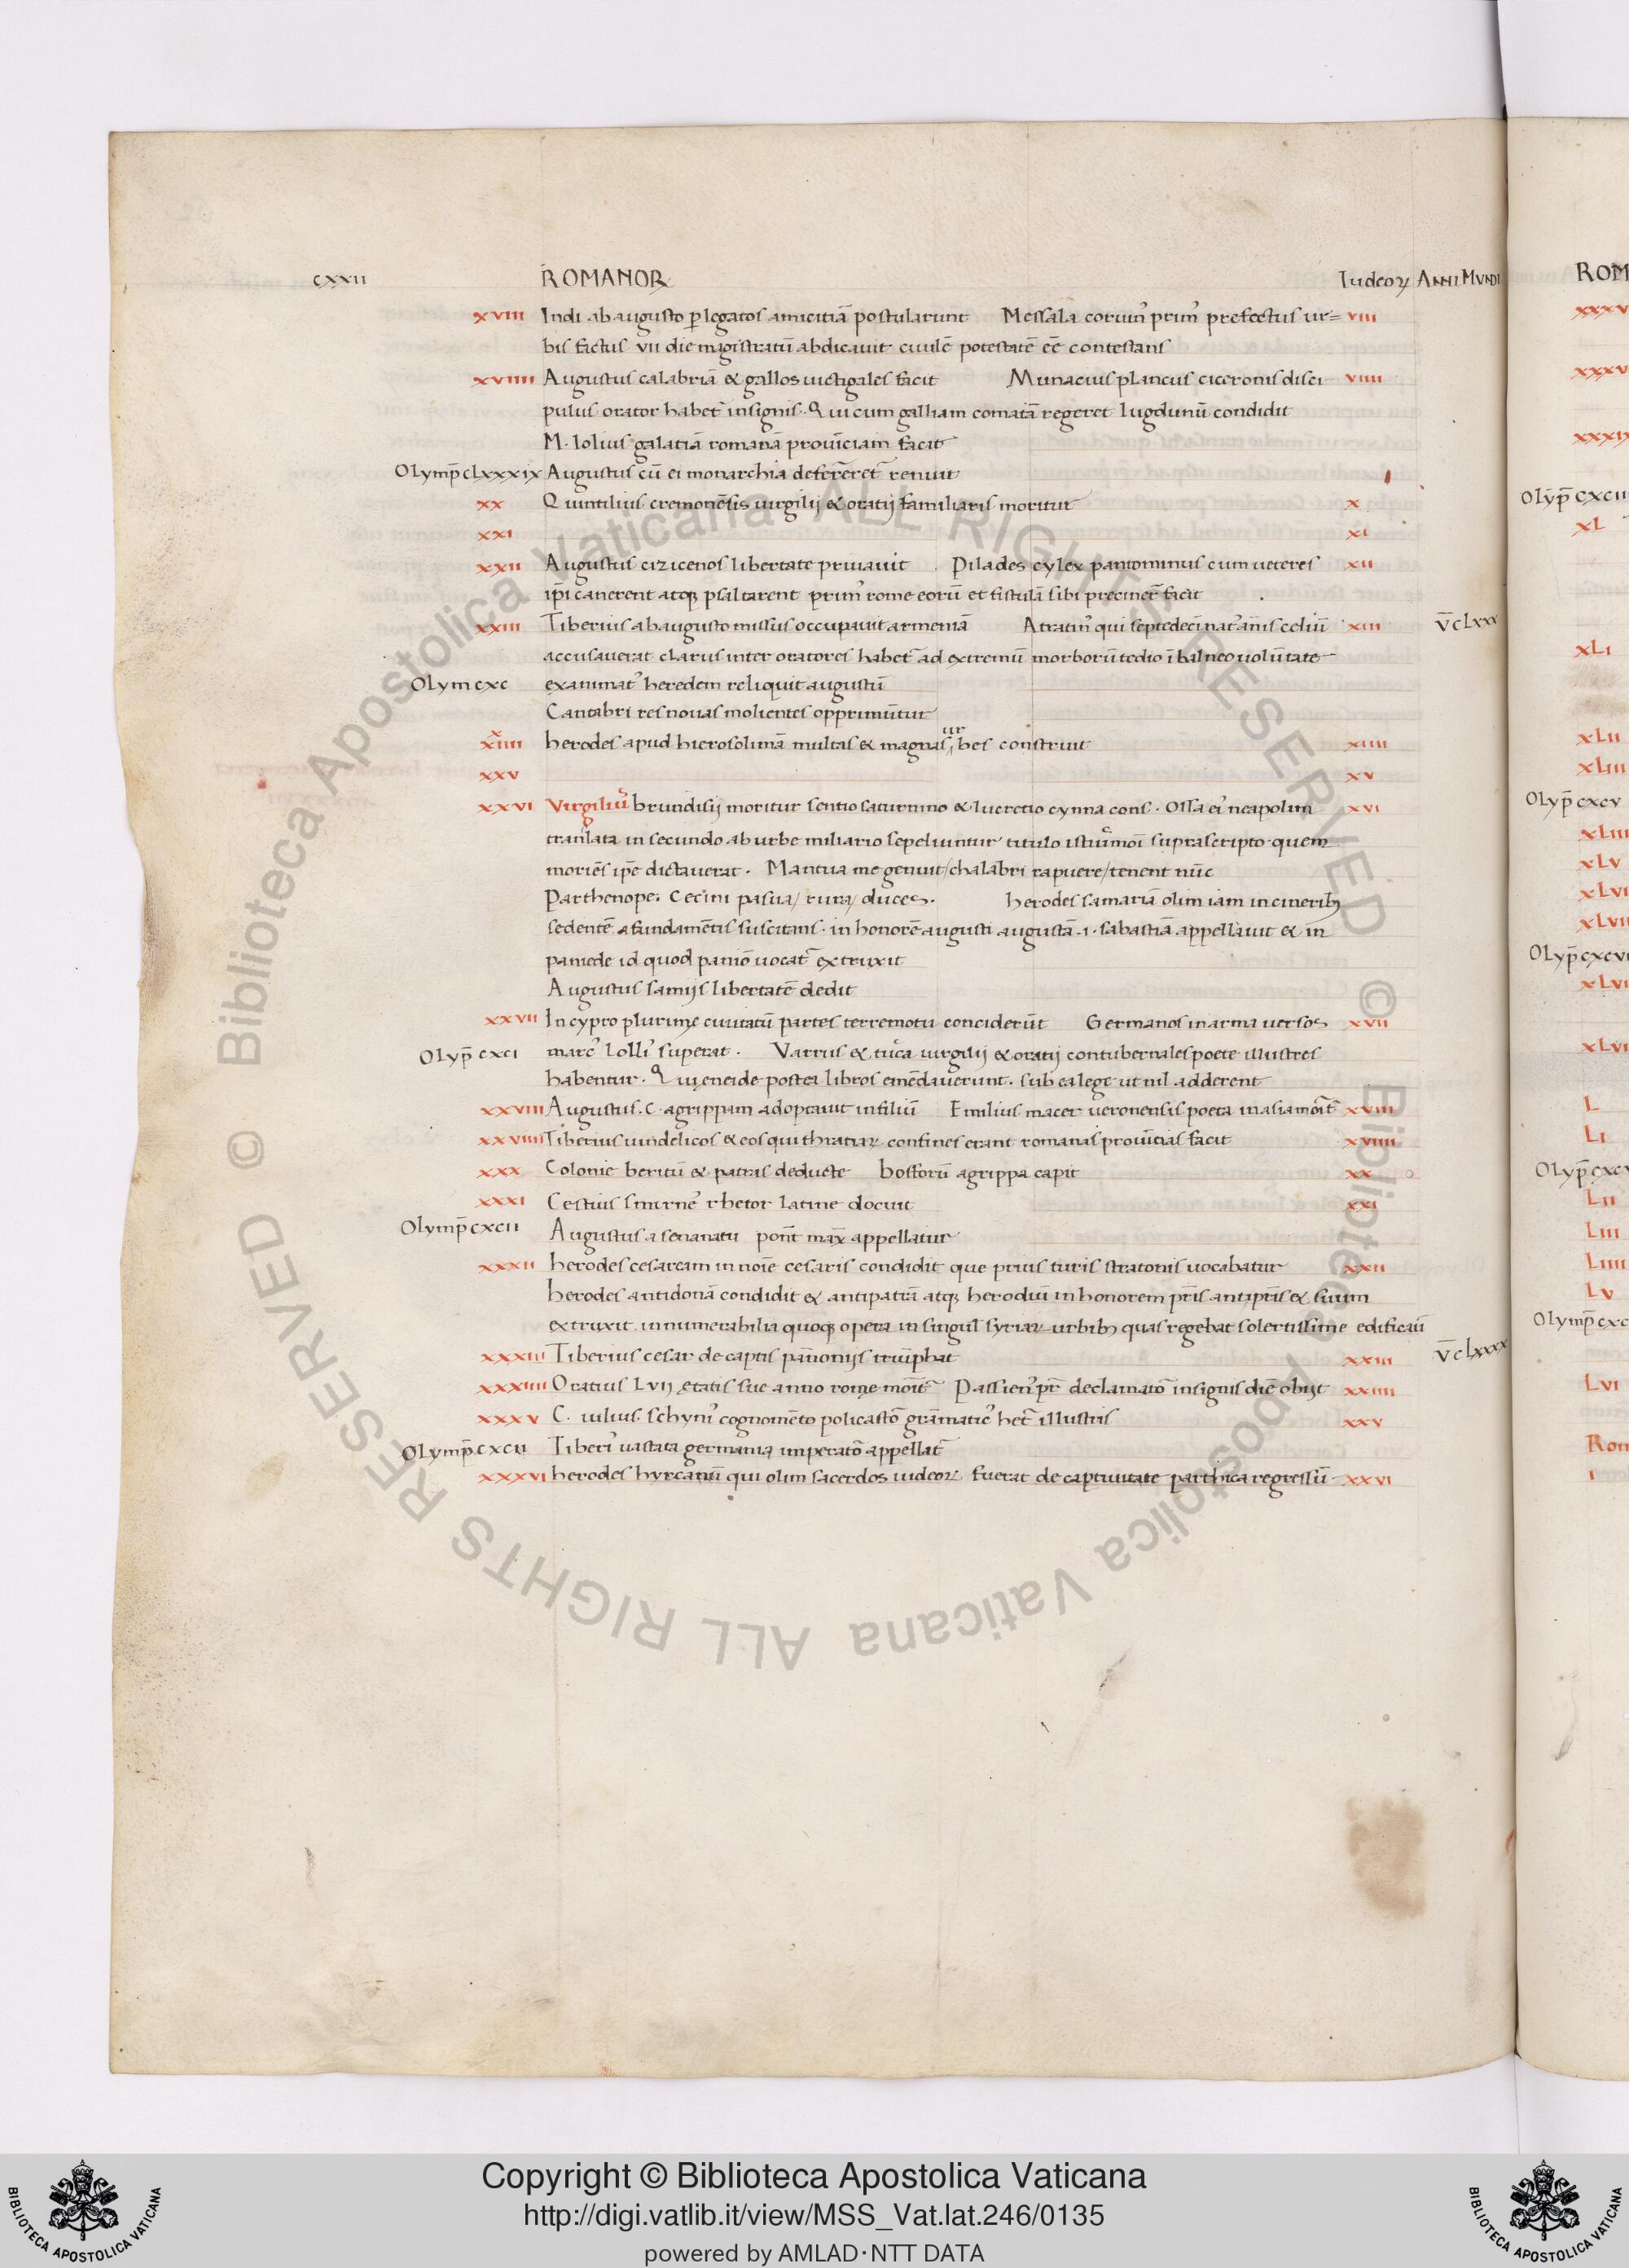 cxxii ROMANOꝜ Iudeoꝝ ANNI MVNDI
xviii Indi ab augusto ꝑ legatos amicitiā postularunt Messala coruin᷒ prim᷒ prefectus ur= viii
bis factus vii die magistratū abdicauit ciuilē potestatē eē contestans
xviiii Augustus calabriā & gallos uictigales facit Munacius plancus ciceronis disci viiii
pulus orator habet᷑ insignis. Qui cum galliam comatā regeret lugdunū condidit
M. lolius galatiā romanā prouīciam facit
Olymp̄ clxxxix Augustus cū ei monarchia deferret᷑ renuit
xx Quintilius cremonēsis uirgilij & oratij familiaris moritur x
xxi xi
xxii Augustus cizicenos libertate priuauit Pilades cylex pantomimus cum ueteres xii
ip̄i canerent atqꝫ psaltarent prim᷒ rome eorū et fistulā sibi preciner̄ facit
xxiii Tiberius ab augusto missus occupauit armeniā Atratin᷒ qui septēdeci nat᷒ ānis celiū xiii v̄clxxx
accusauerat clarus inter oratores habet᷑ ad extremū morborū tedio ī balneo uolūtate
Olym cxc exanimat᷒ heredem reliquit augustū
Cantabri res nouas molientes opprimūtur
xxiiii herodes apud hierosolimā multas & magnas urbes construit xiiii
xxv xv
xxvi Virgilius brundisij moritur sentio saturnino & lucretio cynna cons. Ossa ei᷒ neapolim xvi
translata in secundo ab urbe miliario sepeliuntur titulo istiusmoī suprascripto quem
moriēs ip̄e dictauerat. Mantua me genuit/chalabri rapuere/tenent nūc
Parthenope: Cecini pascua/rura/duces. herodes samariā olim iam in cineribꝫ
sedentē a fundamētis suscitans. in honorē augusti augustā .i. sabastiā appellauit & in
paniede id quod paniō uocat᷑ extruxit
Augustus samijs libertatē dedit
xxvii In cypro plurime ciuitatū partes terremotu conciderūt Germanos in arma uersos xvii
Olyp̄ cxci marc᷒ lolli᷒ superat. Varrus & tucca uirgilij & oratij contubernales poete illustres
habentur. Qui eneide postea libros emēdauerunt. sub ea lege ut nil adderent
xxviii Augustus. C. agrippam adoptauit in filiū Emilius macer ueronensis poeta in asia morit᷑ xviii
xxviiii Tiberius uindelicos & eos qui thraciaꝝ confines erant romanas prouīcias facit xviiii
xxx Colonie beritū & patras deducte bosforū agrippa capit xx
xxxi Cestius smirne᷒ rhetor latine docuit xxi
Olymp̄ cxcii Augustus a senanatu pont̄ max̄ appellatur
xxxii herodes cesaream in noīe cesaris condidit que prius turis stratonis uocabatur xxii
herodes antidonā condidit & antipatriā atqꝫ herodiū in honorem pr̄is antipr̄is & suum
extruxit. innumerabilia quoqꝫ opera in singul̄ syriaꝝ urbibꝫ quas regebat solertissime edificaū
xxxiii Tiberius cesar de captis pānonijs triūphat xxiii v̄clxxxx
xxxiiii Oratius lvij etatis sue anno rome morit᷑ Passien᷒ pr̄ declamatō insignis diē obijt xxiiii
xxxv C. iulius. schyni᷒ cognomēto policastō grāmatic᷒ het᷑ illustris xxv
Olymp̄ cxcii Tiberi᷒ uastata germania imperatō appellat᷑
xxxvi herodes hyrcanū qui olim sacerdos iudeoꝝ fuerat de captiuitate parthica regressū xxvi
ROM
xxxv
xxxv
xxxix
Olyp̄ cxcii
xl
xli
xlii
xliii
Olyp̄ cxcv
xliii
xlv
xlvi
xlvii
Olyp̄ cxcvi
xlvi
xlvi
l
li
Olyp̄ cxcv
lii
liii
liiii
lv
Olymp̄ cxc
lvi
Rom
i
© Biblioteca Apostolica Vaticana ALL RIGHTS RESERVED © Biblioteca Apostolica Vaticana ALL RIGHTS RESERVED
Copyright © Biblioteca Apostolica Vaticana
http://digi.vatlib.it/view/MSS_Vat.lat.246/0135
powered by AMLAD·NTT DATA
BIBLIOTECA APOSTOLICA VATICANA
BIBLIOTECA APOSTOLICA VATICANA